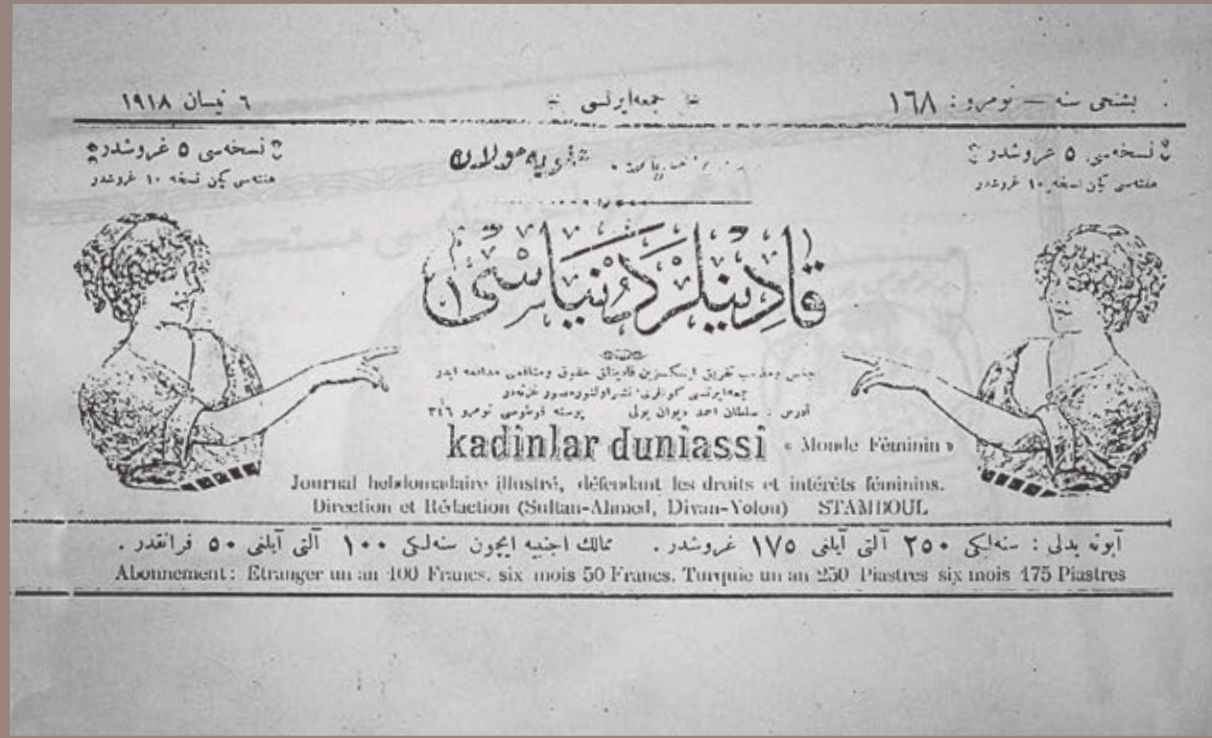 بشنجى سنه — نومرو : ١٦٨
جمعه‌ايرتسى
٦ نيسان ١٩١٨
نسخه‌سى ٥ غروشدر
هفته‌سى كچن نسخه ١٠ غروشدر
نسخه‌سى ٥ غروشدر
هفته‌سى كچن نسخه ١٠ غروشدر
قادينلر دنياسى
جنس ومذهب تفريق ايتمكسزين قادينلق حقوق ومنافعنى مدافعه ايدر
جمعه‌ايرتسى كونلرى نشر اولنور مصور غزته‌در
آدرس : سلطان احمد ديوان يولى پوسته قوطوسى نومرو ٣٤٦
kadinlar duniassi « Monde Féminin »
Journal hebdomadaire illustré, défendant les droits et intérêts féminins.
Direction et Rédaction (Sultan-Ahmed, Divan-Yolou) STAMBOUL
آبونه بدلى : سنه‌لكى ٢٥٠ آلتى آيلغى ١٧٥ غروشدر . ممالك اجنبيه ايچون سنه‌لكى ١٠٠ آلتى آيلغى ٥٠ فرانقدر .
Abonnement : Etranger un an 100 Francs, six mois 50 Francs. Turquie un an 250 Piastres six mois 175 Piastres